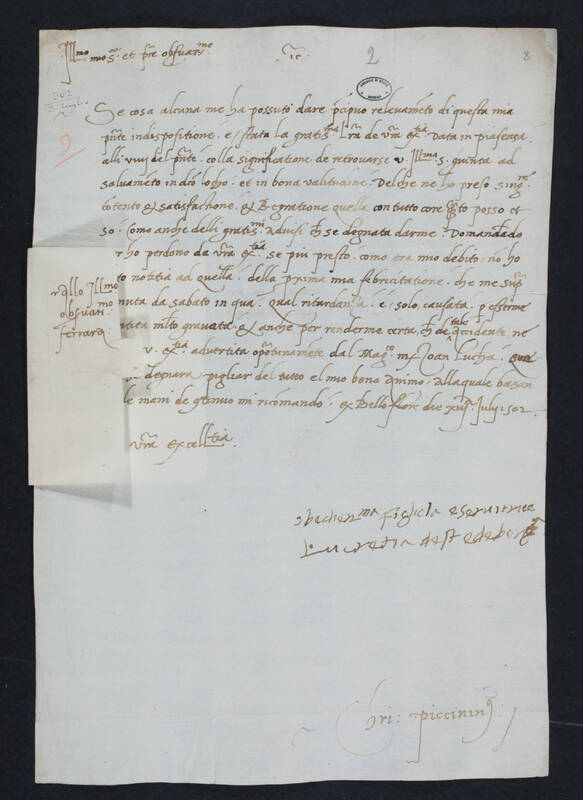 Ill.mo mo S.r et p̄re obs̄uatis.mo
2
8
1502
Se cosa alcuna me ha possuti dare p̄cipuo relevam̄eto di questa mia
p̄nte indispositione . e, stata la gratis.ma l̄ra de v̄ra ex.tia Data in piasensa
alli viiij del p̄nte . colla significatione de retrouarse v. Ill.ma s. giunta ad
saluam̄eto in dicto locho . et in bona valitudine . Del che ne ho preso sing.re
cōtento et satisfactione . et Regratione quella con tutto core q̄to posso et
so . Como anche delli gratis.mi Aduisi ch̄ se degnata darme . Domanda̅do
ho perdono da v̄ra ex.tia se piu presto . como era mio debito . no ho
notitia ad quella . della prima mia febricitatione . che me sup̄
nuta da sabato in qua . qual ritardan̄sa . e, solo, causata . p esserme
tita m̄lto grauata . et anche per renderme certa, ch̄ de tale accidente ne
v. ex.tia aduertita op̄otunam̄ete dal Mag.co m̄ Joan Lucha .
degnara pigliar del tutto el mio bono animo . Alla quale basan
le mani de c̄tinuo mi ricomando . ex Belloflore die xiij July 1502
v̄ra excell.tia
Ill.mo
mo
obs̄uan
ferrara
obedien.ma figliola e seruitrice
Lucretia de ste de borgia
Chri: piccinin9